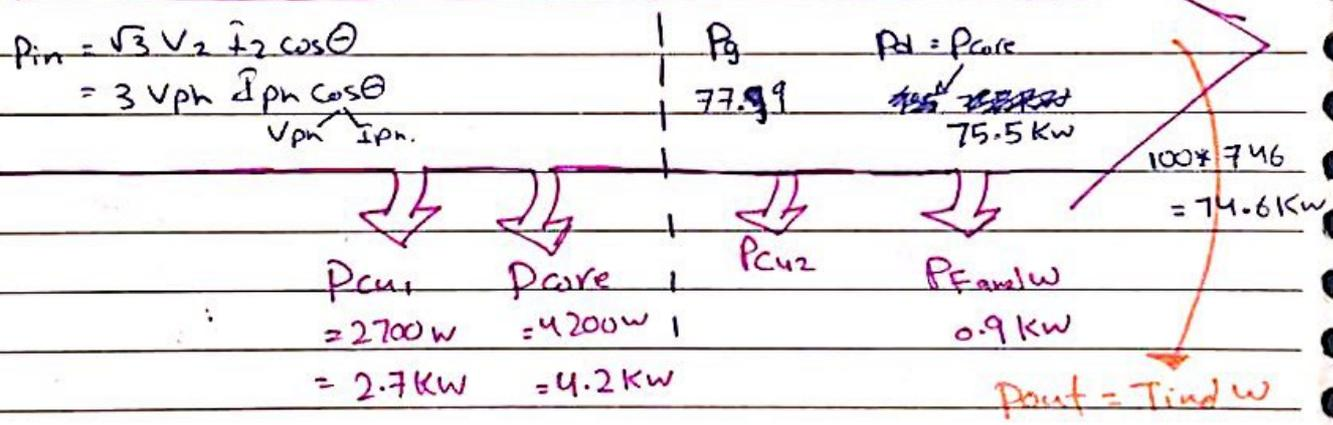 Pin = √3 V2 I2 cosθ
= 3 Vph Iph cosθ
Vph Iph.
Pg
77.99
Pd = Pcore
75.5 Kw
100* 746
= 74.6 Kw
Pcu1
= 2700 w
= 2.7 KW
Pcore
= 4200 w
= 4.2 KW
Pcu2
PFandw
0.9 KW
Pout = Tind w